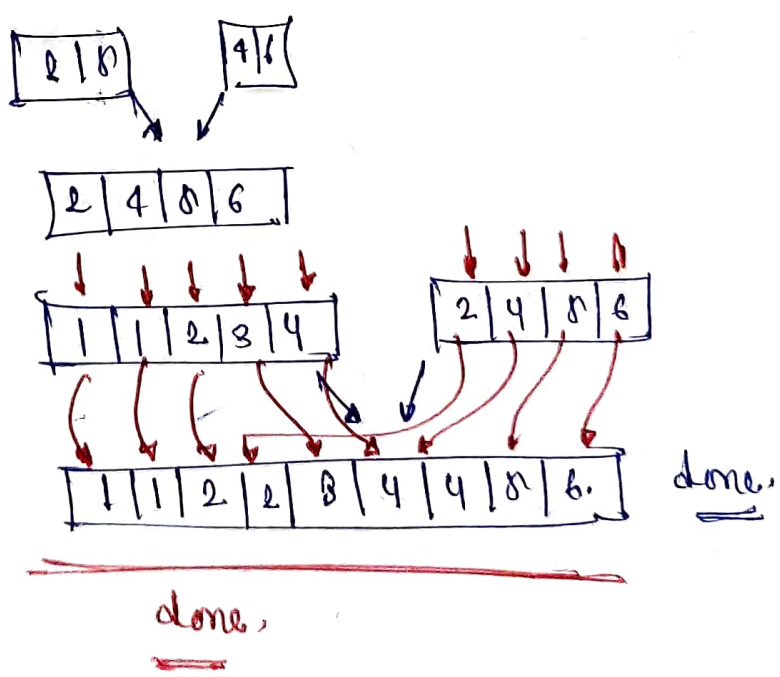 2 | 5 4 | 6
2 | 4 | 5 | 6
1 | 1 | 2 | 3 | 4 2 | 4 | 5 | 6
1 | 1 | 2 | 2 | 3 | 4 | 4 | 5 | 6.
done.
done.